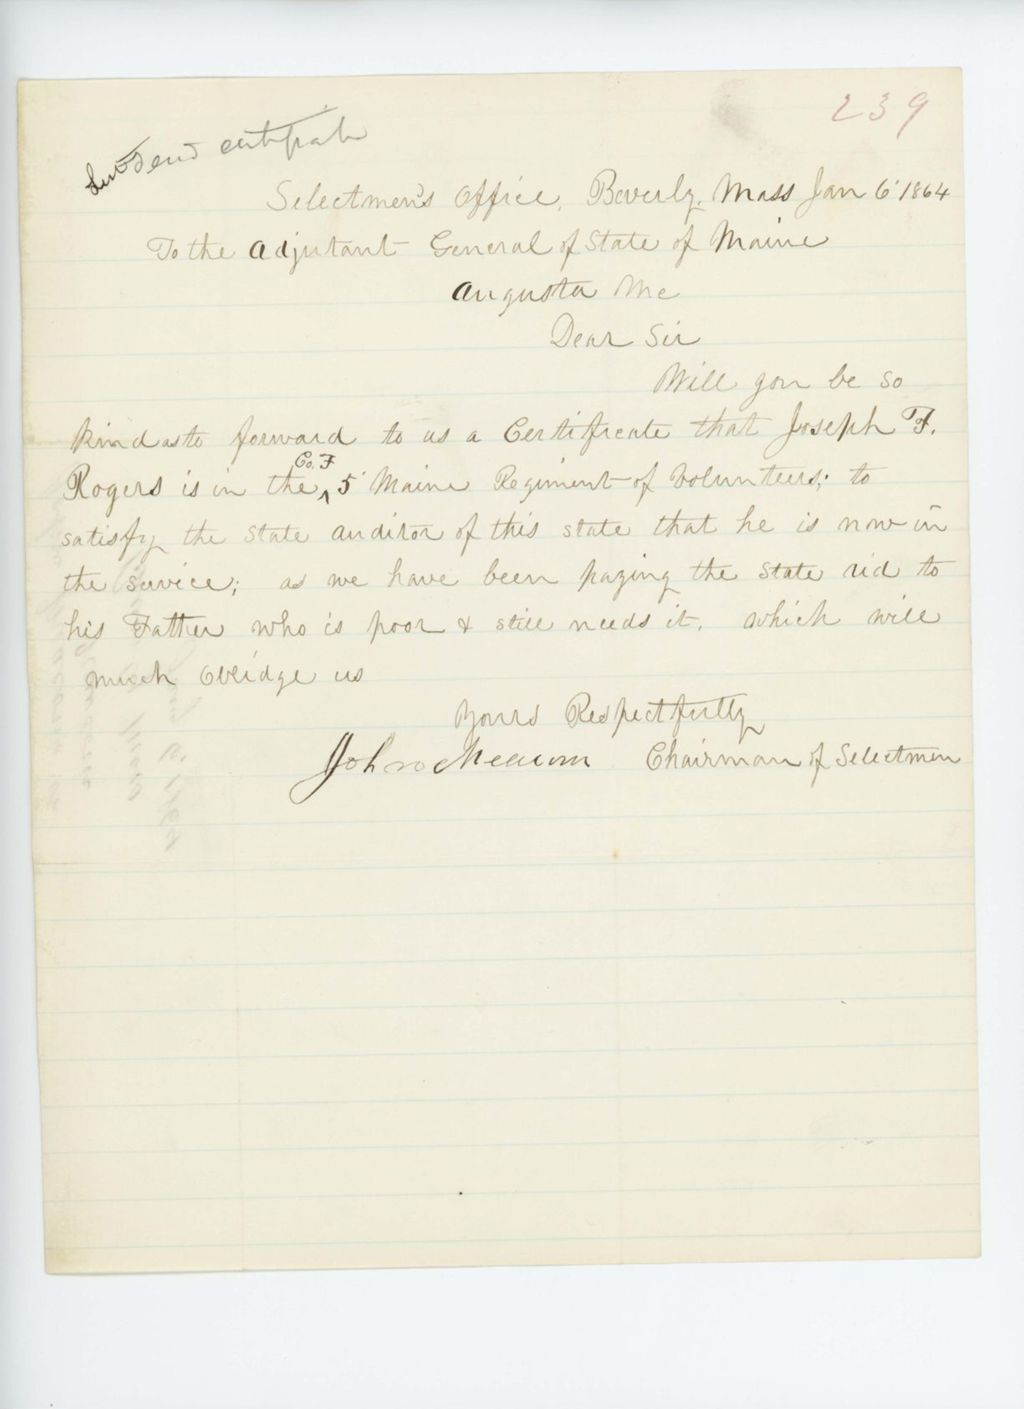 239
Send certificate
Selectmen's Office, Beverly, Mass Jan 6' 1864
To the Adjutant General of State of Maine
Augusta Me
Dear Sir
Will you be so
kind as to forward to us a Certificate that Joseph F.
Co. F
Rogers is in the ^ 5' Maine Regiment of Volunteers; to
satisfy the State Auditor of this state that he is now in
the service; as we have been paying the State aid to
his Father who is poor & still needs it. which will
much obleidge us
Yours Respectfully
John Meacom Chairman of Selectmen